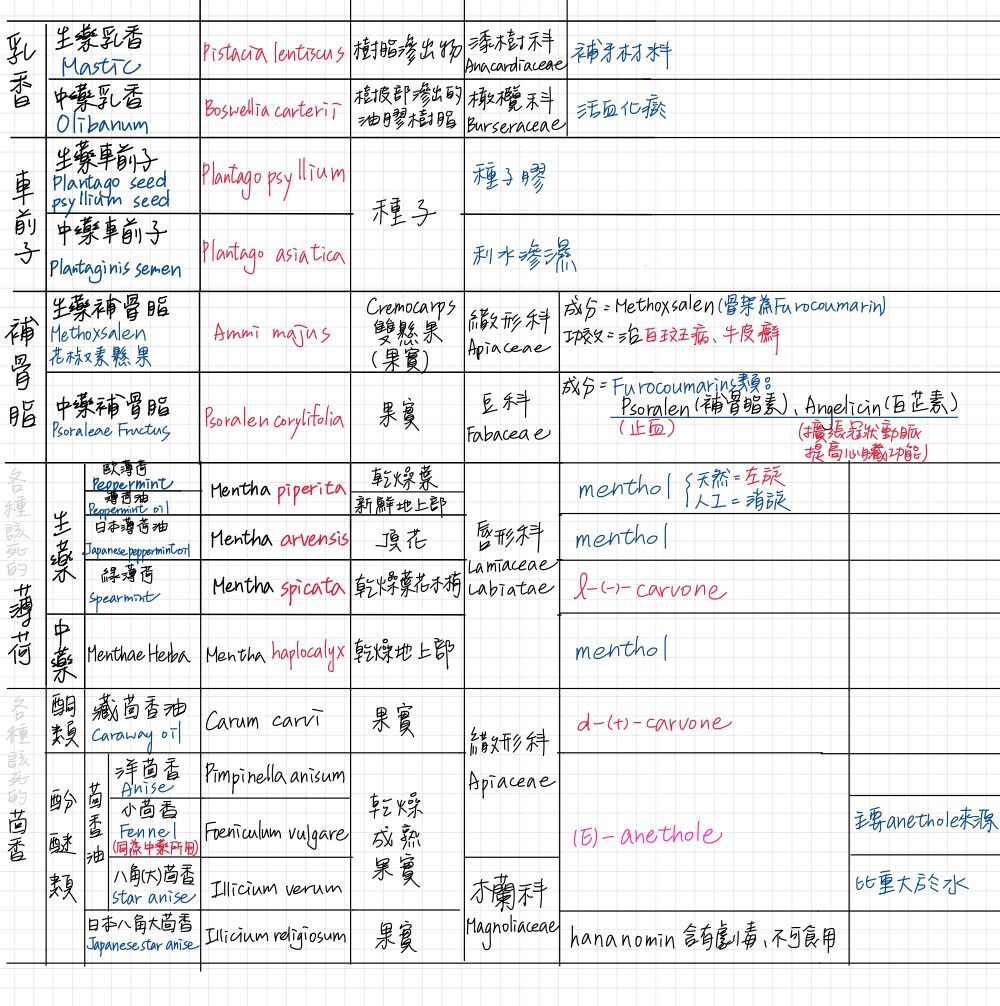 乳香
生藥乳香
Mastic
Pistacia lentiscus
樹脂滲出物
漆樹科
Anacardiaceae
補牙材料
中藥乳香
Olibanum
Boswellia carterii
樹皮部滲出的
油膠樹脂
橄欖科
Burseraceae
活血化瘀
車前子
生藥車前子
Plantago seed
psyllium seed
Plantago psyllium
種子
種子膠
中藥車前子
Plantaginis semen
Plantago asiatica
利水滲濕
補骨脂
生藥補骨脂
Methoxsalen
花椒素懸果
Ammi majus
Cremocarps
雙懸果
(果實)
繖形科
Apiaceae
成分=Methoxsalen(骨架為Furocoumarin)
功效=治白斑病、牛皮癬
中藥補骨脂
Psoraleae Fructus
Psoralen corylifolia
果實
豆科
Fabaceae
成分=Furocoumarins類:
Psoralen(補骨脂素)、Angelicin(白芷素)
(止血)
(擴張冠狀動脈
提高心臟功能)
各種該死的薄荷
生藥
歐薄荷
Peppermint
薄荷油
Peppermint oil
Mentha piperita
乾燥葉
新鮮地上部
唇形科
Lamiaceae
Labiatae
menthol
天然=左旋
人工=消旋
日本薄荷油
Japanese peppermint oil
Mentha arvensis
頂花
menthol
綠薄荷
Spearmint
Mentha spicata
乾燥葉花木梢
l-(-)-carvone
中藥
Menthae Herba
Mentha haplocalyx
乾燥地上部
menthol
各種該死的茴香
酮類
藏茴香油
Caraway oil
Carum carvi
果實
繖形科
Apiaceae
d-(+)-carvone
酚醚類
茴香油
洋茴香
Anise
Pimpinella anisum
乾燥
成熟
果實
(E)-anethole
小茴香
Fennel
(同為中藥所用)
Foeniculum vulgare
主要anethole來源
八角(大)茴香
star anise
Illicium verum
木蘭科
Magnoliaceae
比重大於水
日本八角大茴香
Japanese star anise
Illicium religiosum
果實
hananomin 含有劇毒、不可食用